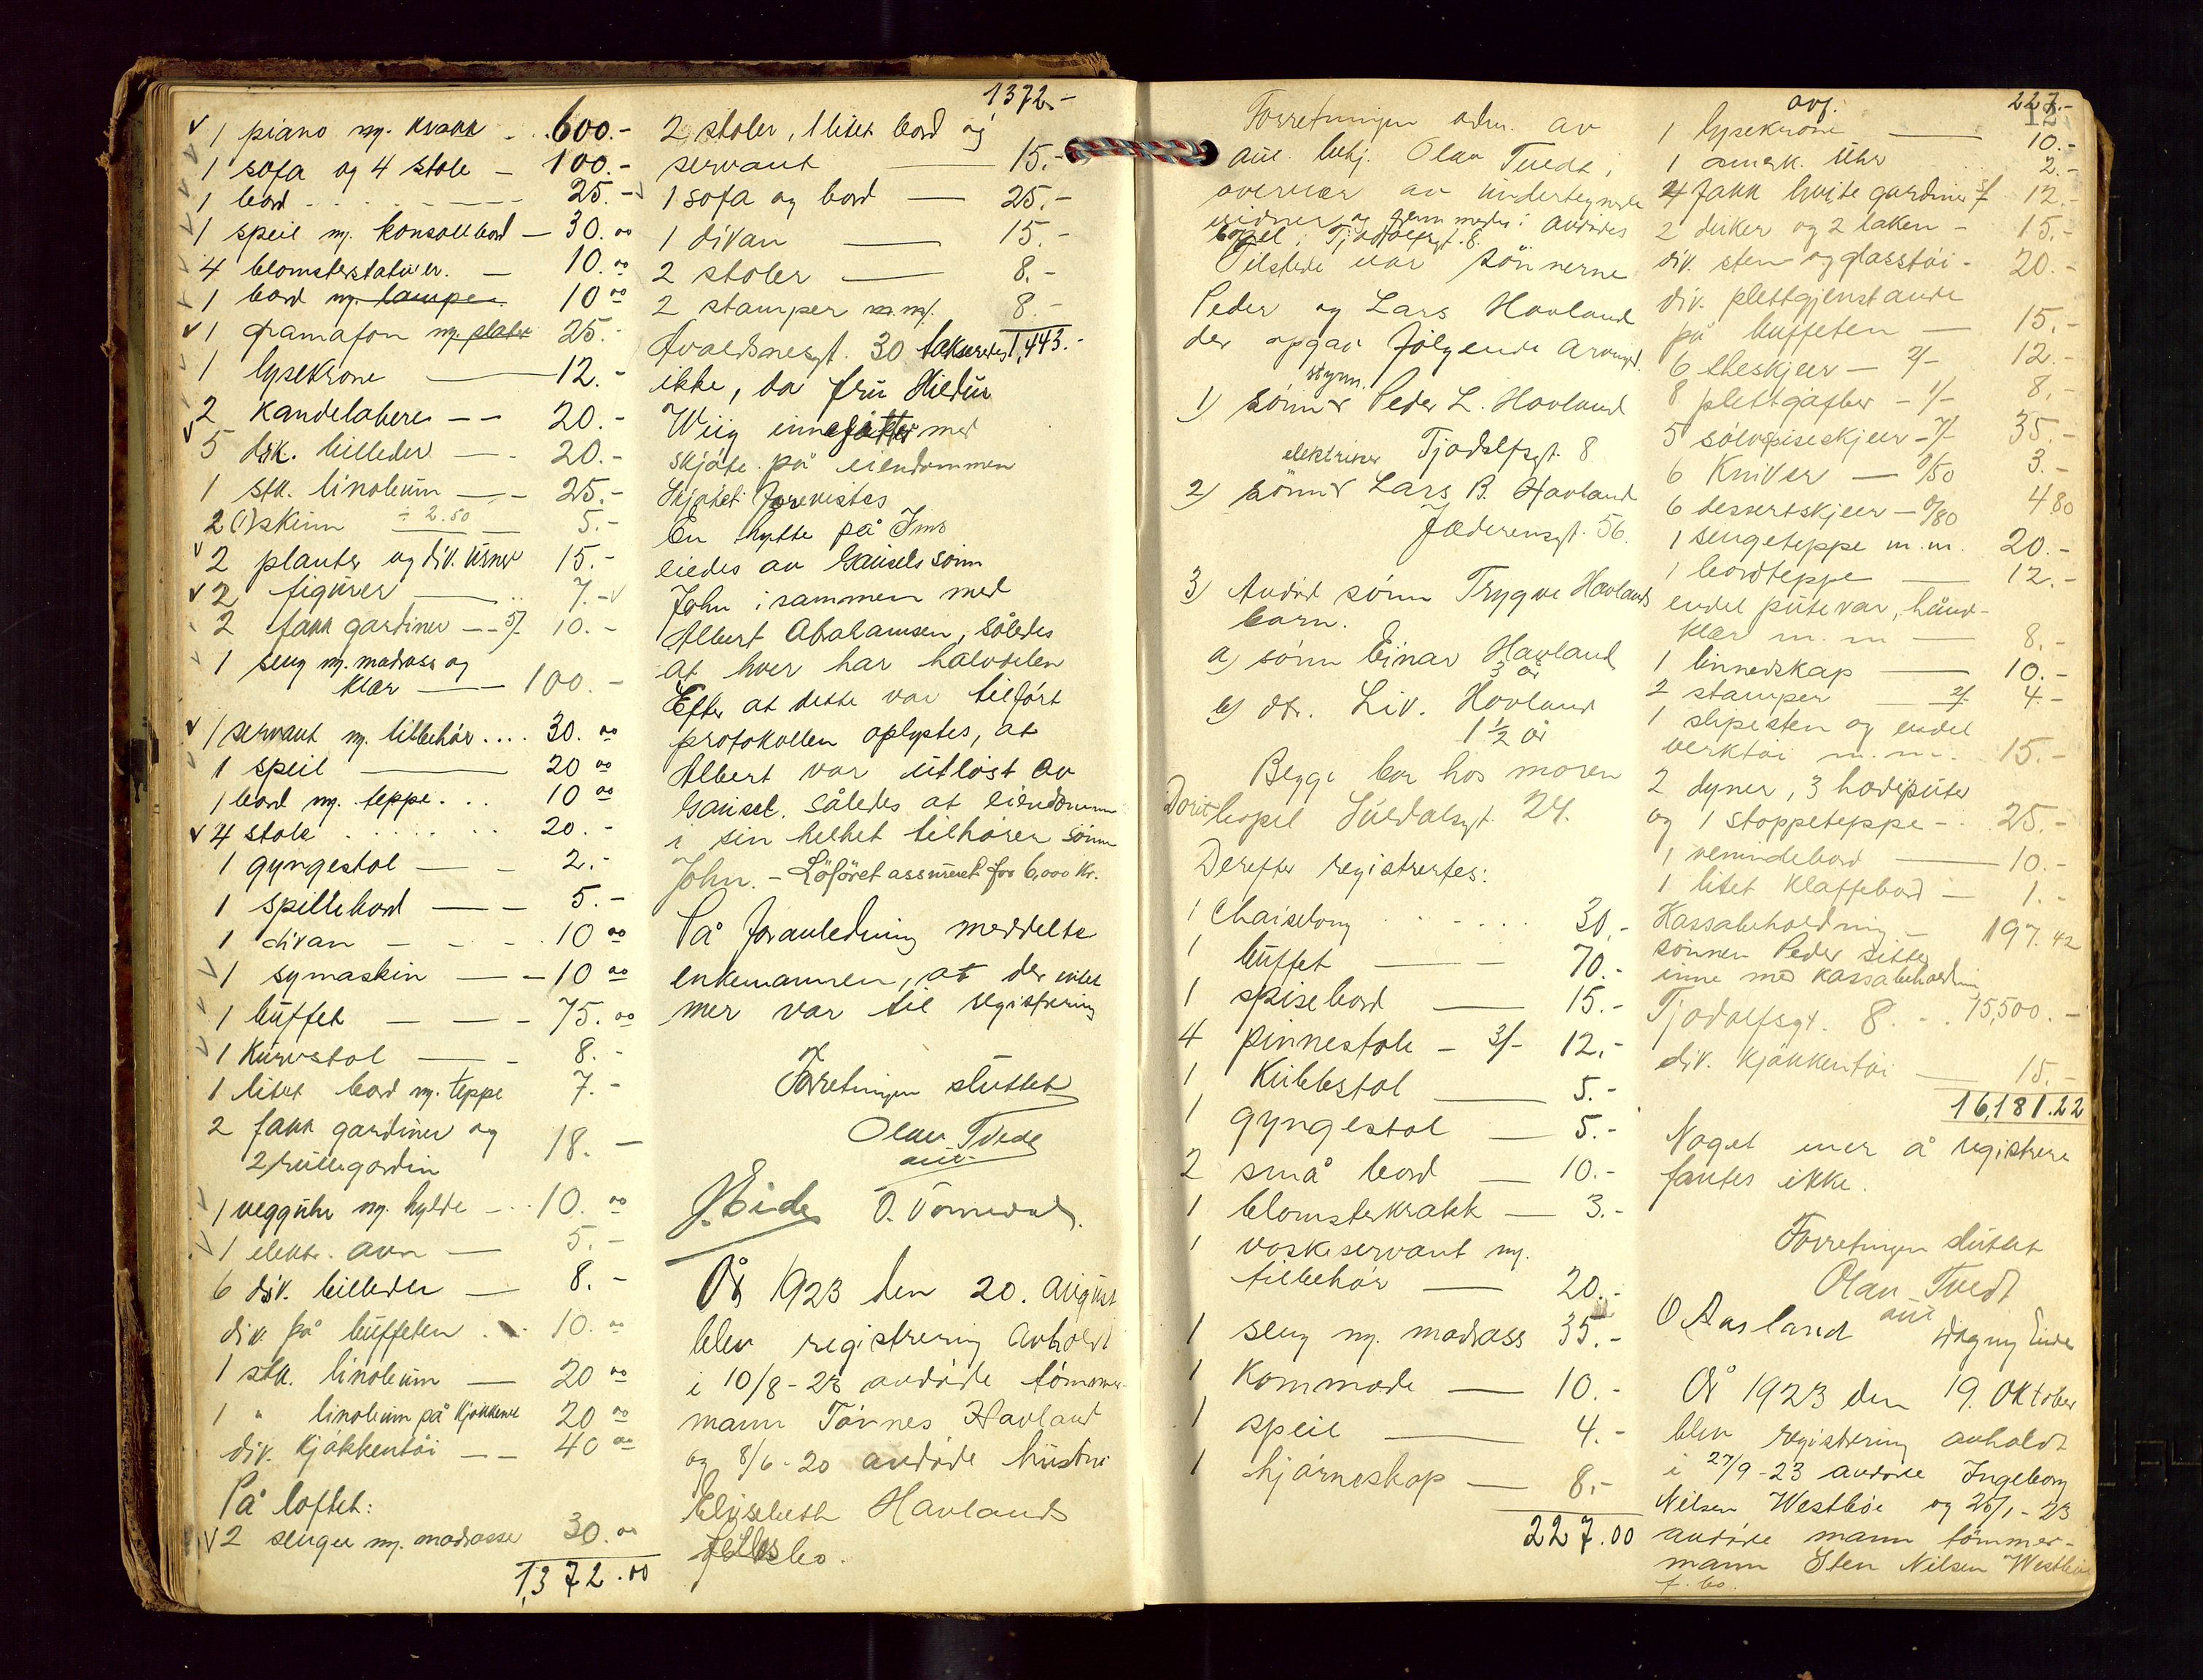 1 piano m. krakk - 600.-
1 sofa og 4 stole - 100.-
1 bord 25.-
1 speil m. konsollbord - 30.00
4 blomsterstativer. - 10.00
1 bord m. lampe 10 00
1 gramafon m. plater 25.-
1 lysekrone 12.-
2 kandelabere -- 20.-
5 stk. billeder - 20.-
1 stk. linoleum - 25.-
2 (1) skinn ÷ 2.50 5.-
2 planter og div. urner 15.-
2 figurer 7.-
2 fakk gardiner -- 5/- 10.-
1 seng m. madrass og
klær 100.-
1 servant m. tilbehør.... 30.00
1 speil 20 00
1 bord m. teppe... 10 00
4 stole 20.-
1 gyngestol - 2.-
1 spillebord - 5.-
1 divan - 10 00
1 symaskin - 10 00
1 buffet - 75.00
1 kurvstol - 8.-
1 litet bord m. teppe 7.-
2 fakk gardiner og
2 rullegardin 18.-
1 vegguhr m. hylde - 10.00
1 elektr. ovn - 5.-
6 div. billeder - 8.-
div. på buffeten 10.00
1 stk. linoleum - 20 00
1 " linoleum på kjøkkenet 20 00
div. kjøkkentøi -- 40 00
På loftet:
2 senger m. madrasser 30.00
1,372.00
1372.-
2 stoler, 1 litet bord og
servant 15.-
1 sofa og bord - 25.-
1 divan 15.-
2 stoler 8.-
2 stamper m.m. 8.-
1,443.-
Avaldsnesgt. 30 takseres
ikke, da fru Hildur
Wiig innesitter med
skjøte på eiendommen
Skjøtet forevistes
En hytte på Ims
eiedes av Gausels sønn
John i sammen med
Albert Abrahamsen, således
at hver har halvdelen
Efter at dette var tilført
protokollen oplystes, at
Albert var utløst av
Gausel. således at eiendommen
i sin helhet tilhører sønn
John. - Løsøret assureret for 6,000 kr.
På foranledning meddelte
enkemannen, at der intet
mer var til registrering
Forretningen sluttet
Olav Tvedt
aut.
J. Eide O. Tornedal.
År 1923 den 20. august
blev registrering avholdt
i 10/8-23 avdøde tømmer-
mann Tønnes Havland
og 8/6-20 avdøde hustru
Elisabeth Havlands
fellesbo.
Forretningen adm. av
aut. betj. Olav Tvedt i
overvær av undertegnede
vidner og fremmedes i avdødes
bopel i Tjodolfsgt. 8.
Tilstede var sønnerne
Peder og Lars Havland
der opgav følgende arvinger
styrm.
1) sønn Peder L. Havland
Tjodolfsgt. 8
elektriker
2) sønn Lars B. Havland
Jæderensgt. 56.
3) Avdød sønn Trygve Havlands
barn.
a) sønn Einar Havland
3 år
b) dtr. Liv. Havland
1 1/2 år
Begge bor hos moren
bopel Suldalsgt. 24.
Derefter registrertes:
1 Chaiselong 30.-
1 buffet 70.-
1 spisebord 15.-
4 pinnestole - 3/- 12.-
1 Kubbstol 5.-
1 gyngestol 5.-
2 små bord 10.-
1 blomsterkrakk - 3.-
1 vaskeservant m.
tilbehør 20.-
1 seng m. madrass 35.-
1 kommode 10.-
1 speil 4.-
1 hjørneskap 8.-
227.00
ovf. 227.-
1 lysekrone 10.-
1 amerk. uhr 2.-
4 fakk hvite gardiner 12.-
2 duker og 2 laken - 15.-
div. sten- og glasstøi - 20.-
div. plettgjenstande
på buffeten 15.-
6 theskjeer - 2/- 12.-
8 plettgafler - 1/- 8.-
5 sølvspiseskjeer - 7/- 35.-
6 Kniver - 0/50 3.-
6 dessertskjeer - 0/80 4 80
1 sengeteppe m.m. 20.-
1 bordteppe 12.-
endel putevar, hånd-
klær m.m 8.-
1 linnedskap 10.-
2 stamper 2/- 4.-
1 slipesten og endel
verktøi m.m. 15.-
2 dyner, 3 hodeputer
og 1 stoppeteppe - 25.-
1 vevindebord 10.-
1 litet klaffebord - 1.-
Kassabeholdning - 197.42
sønnen Peder sitter
inne med kassabeholdn
Tjodolfsgt. 8. 15,500.-
div. kjøkkentøi 15.-
16,181.22
Noget mer å registrere
fantes ikke.
Forretningen sluttet
Olav Tvedt
aut
O Aasland Dagny Eide
År 1923 den 19. Oktober
blev registrering avholdt
i 27/9-23 avdøde Ingeborg
Nilsen Westbøe og 25/1-23
avdøde mann tømmer-
mann Sten Nilsen Westbøe
f. bo.